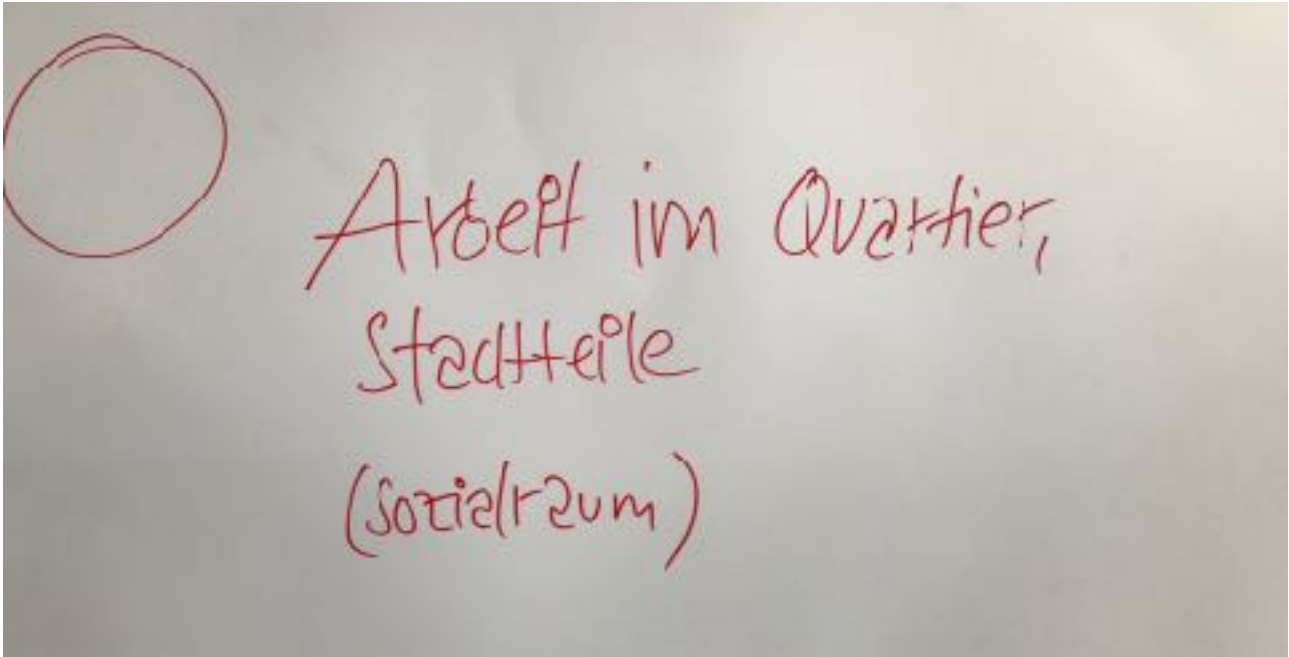 Arbeit im Quartier,
Stadtteile
(Sozialraum)